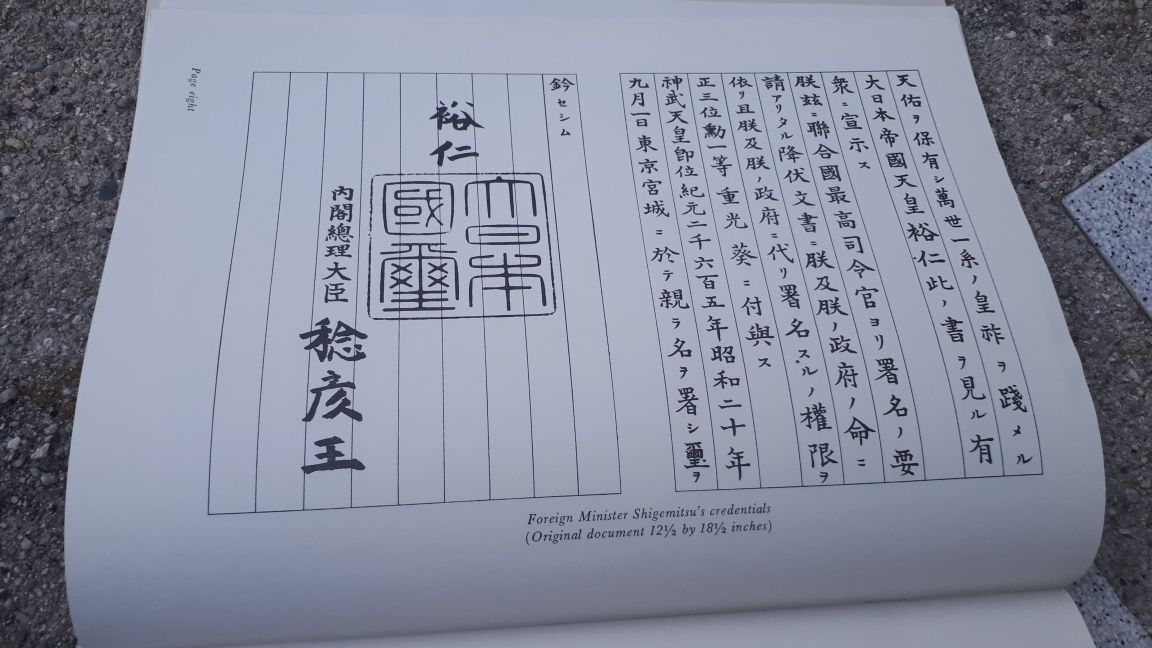 天佑ヲ保有シ萬世一系ノ皇祚ヲ踐メル
大日本帝國天皇裕仁此ノ書ヲ見ル有
衆ニ宣示ス
朕玆ニ聯合國最高司令官ヨリ署名ノ要
請アリタル降伏文書ニ朕及朕ノ政府ノ命ニ
依リ且朕及朕ノ政府ニ代リ署名スルノ權限ヲ
正三位勲一等重光葵ニ付與ス
神武天皇即位紀元二千六百五年昭和二十年
九月一日東京宮城ニ於テ親ラ名ヲ署シ璽ヲ
鈐セシム
裕仁
大日本
國璽
內閣總理大臣 稔彥王
Foreign Minister Shigemitsu's credentials
(Original document 12½ by 18½ inches)
Page eight